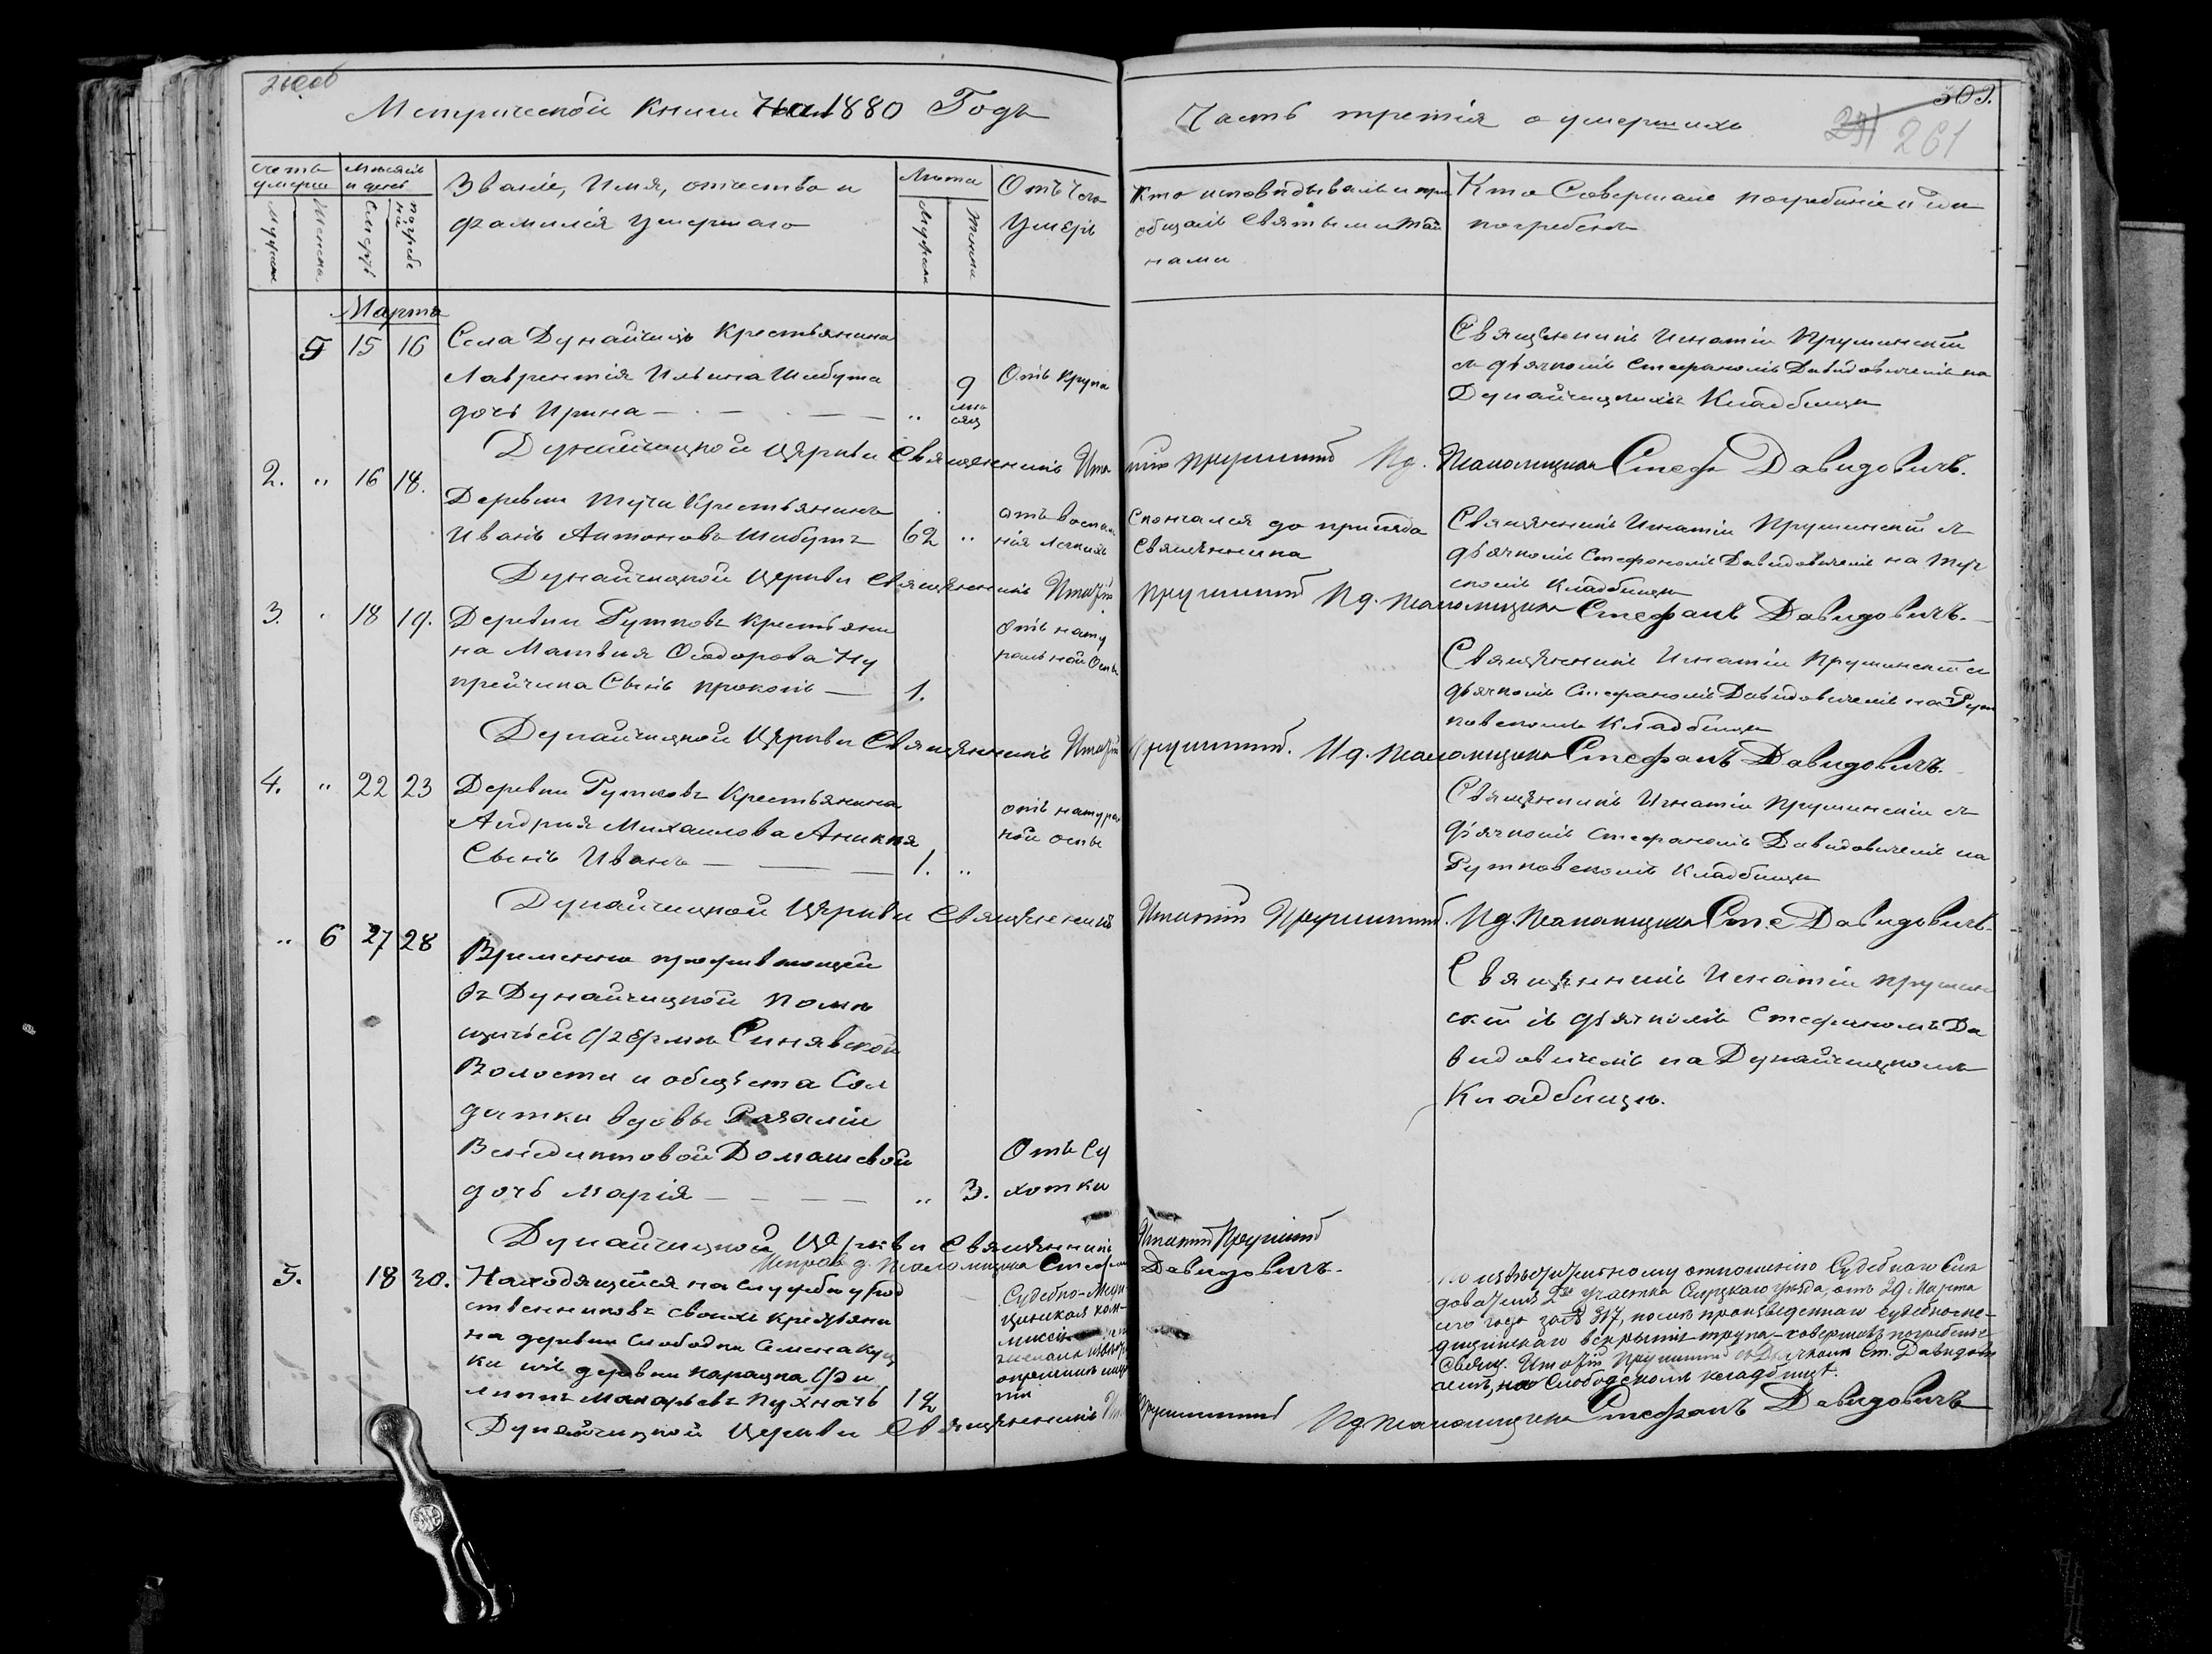 Метрической Книги На 1880 Годъ
Часть третія о умершихъ
303.
261
Счетъ умерш
Мѣсяцъ и день
Званіе, Имя, отчество и
фамилія умершаго
Лѣта
Отъ чего
Умеръ
Кто исповѣдывалъ и при
общалъ Святыми тай
нами
Кто Совершалъ погребеніе и гдѣ
погребенъ
Марта
5 15 16
Села Дунайчицъ Крестьянина
Лаврентія Ильина Шибута
дочь Ирина — „ 9 мѣ
сяц
Отъ крупа
Священникъ Игнатій Прушинскій
съ дьячкомъ Стефаномъ Давидовичемъ на
Дунайчицкихъ Кладбищѣ
Дунайчицкой Церкви Священникъ Игнатій Прушинскій И д. Псаломщика Стеф Давидовичъ.
2. „ 16 18.
Деревни Тучи Крестьянинъ
Иванъ Антоновъ Шибутъ 62 „
отъ воспале
нія легкихъ
Скончался до пріѣзда
Священника
Священникъ Игнатій Прушинскій съ
дьячкомъ Стефаномъ Давидовичемъ на Туч
скомъ Кладбищѣ
Дунайчицкой Церкви Священникъ Игнатій Прушинскій И д. Псаломщика Стефанъ Давидовичъ.
3. 18 19.
Деревни Гутковъ Крестьяни
на Матвѣя Ѳеодорова Ку
прейчика Сынъ Прокопъ — 1.
Отъ нату
ральной Оспы
Священникъ Игнатій Прушинскій съ
дьячкомъ Стефаномъ Давидовичемъ на Гут
ковскомъ Кладбищѣ
Дунайчицкой Церкви Священникъ Игнатій Прушинскій. И д. Псаломщика Стефанъ Давидовичъ.
4. „ 22 23
Деревни Гутковъ Крестьянина
Андрея Михаилова Аникѣя
Сынъ Иванъ — 1. „
отъ натураль
ной оспы
Священникъ Игнатій Прушинскій съ
дьячкомъ Стефаномъ Давидовичемъ на
Гутковскомъ Кладбищѣ
Дунайчицкой Церкви Священникъ Игнатій Прушинскій. И д. Псаломщика Сте Давидовичъ.
„ 6 27 28
Временно проживающей
въ Дунайчицкой помѣ
щичьей фермѣ Синявской
Волости и общества Сол
датки вдовы Розаліи
Венедиктовой Домашевой
дочь Марія — „ 3.
Отъ Су
хотки
Священникъ Игнатій Прушин
скій съ дьячкомъ Стефаномъ Да
видовичемъ на Дунайчицкомъ
Кладбищѣ.
Дунайчицкой Церкви Священникъ Игнатій Прушинскій
Исправ д. Псаломщика Стефанъ Давидовичъ.
5. 18 30.
Находящійся на службѣ у род
ственниковъ своихъ крестьяни
на деревни Слободки Семена Куц
ки изъ деревни Карацка Фи
липпъ Макарьевъ Пухначъ 12
Судебно-Меди
цинская ком-
миссія
участка Слуцкаго уѣзда, отъ 29 Марта
сего года за № 317, послѣ произведеннаго судебно-ме-
дицинскаго вскрытія трупа - совершалъ погребеніе
Свящ. Игнатій Прушинскій съ Дьячкомъ Ст. Давидови
чемъ, на Слободскомъ кладбищѣ.
Дунайчицкой Церкви Священникъ Прушинскій И д Псаломщика Стефанъ Давидовичъ